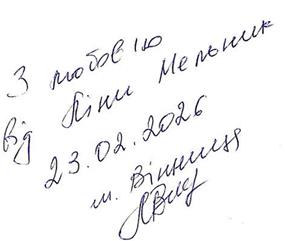 З любов'ю
від Ліни Мельник
23.02.2026
м. Вінниця